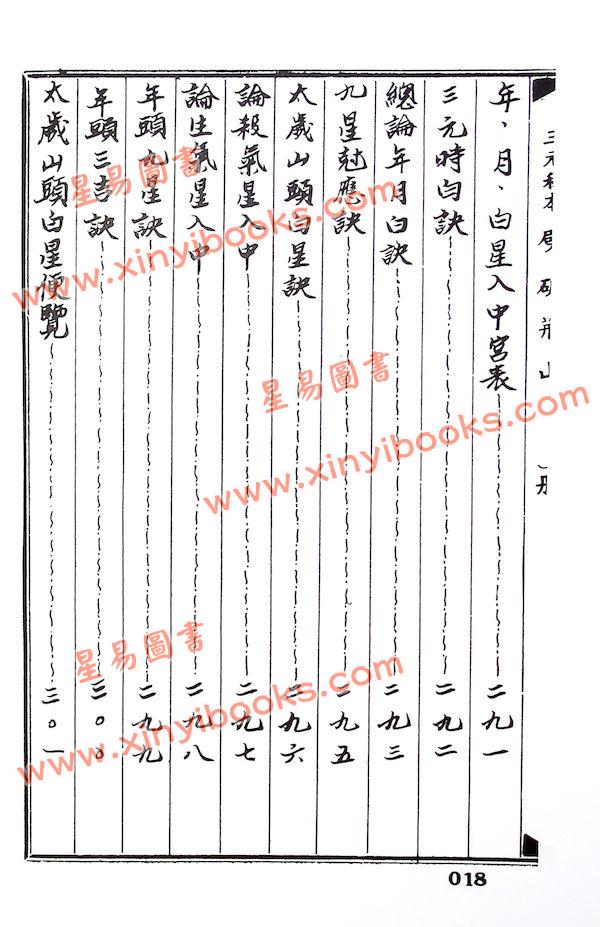 年、月、白星入中宮表 二九一
三元時白訣 二九二
總論年月白訣 二九三
九星尅應訣 二九五
太歲山頭白星訣 二九六
論殺氣星入中 二九七
論生氣星入中 二九八
年頭九星訣 二九九
年頭三吉訣 三○○
太歲山頭白星便覽 三○一
018
星易圖書
www.xinyibooks.com
星易圖書
www.xinyibooks.com
星易圖書
www.xinyibooks.com